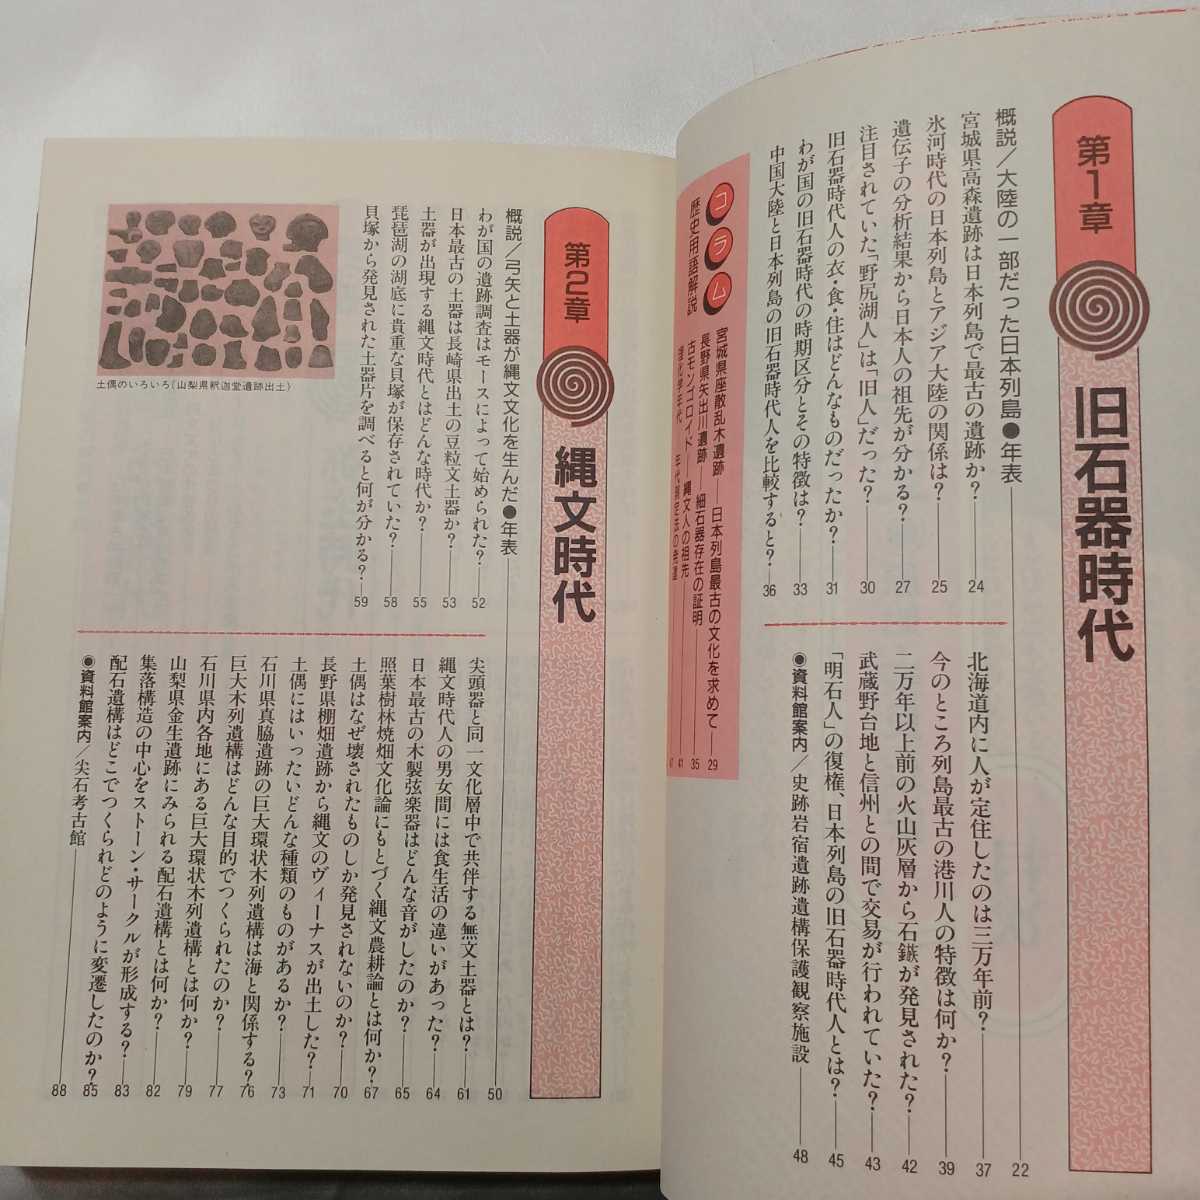 第1章
旧石器時代
概説／大陸の一部だった日本列島●年表 22
宮城県高森遺跡は日本列島で最古の遺跡か? 24
氷河時代の日本列島とアジア大陸の関係は? 25
遺伝子の分析結果から日本人の祖先が分かる? 27
注目されていた「野尻湖人」は「旧人」だった? 30
旧石器時代人の衣・食・住はどんなものだったか? 31
わが国の旧石器時代の時期区分とその特徴は? 33
中国大陸と日本列島の旧石器時代人を比較すると? 36
北海道内に人が定住したのは三万年前? 37
今のところ列島最古の港川人の特徴は何か? 39
二万年以上前の火山灰層から石鏃が発見された? 42
武蔵野台地と信州との間で交易が行われていた? 43
「明石人」の復権、日本列島の旧石器時代人とは? 45
●資料館案内／史跡岩宿遺跡遺構保護観察施設 48
コラム
歴史用語解説
宮城県座散乱木遺跡 日本列島最古の文化を求めて 29
長野県矢出川遺跡 細石器存在の証明 35
古モンゴロイド 縄文人の祖先 41
理化学年代 年代測定法の発達
第2章
縄文時代
概説／弓矢と土器が縄文文化を生んだ●年表 50
わが国の遺跡調査はモースによって始められた? 52
日本最古の土器は長崎県出土の豆粒文土器か? 53
土器が出現する縄文時代とはどんな時代か? 55
琵琶湖の湖底に貴重な貝塚が保存されていた? 58
貝塚から発見された土器片を調べると何が分かる? 59
土偶のいろいろ（山梨県釈迦堂遺跡出土）
尖頭器と同一文化層中で共伴する無文土器とは? 61
縄文時代人の男女間には食生活の違いがあった? 64
日本最古の木製弦楽器はどんな音がしたのか? 65
照葉樹林焼畑文化論にもとづく縄文農耕論とは何か? 67
土偶はなぜ壊されたものしか発見されないのか? 70
長野県棚畑遺跡から縄文のヴィーナスが出土した? 71
土偶にはいったいどんな種類のものがあるか? 73
石川県真脇遺跡の巨大環状木列遺構は海と関係する? 76
巨大木列遺構はどんな目的でつくられたのか? 77
石川県内各地にある巨大環状木列遺構とは何か? 79
山梨県金生遺跡にみられる配石遺構とは何か? 82
集落構造の中心をストーン・サークルが形成する? 83
配石遺構はどこでつくられどのように変遷したのか? 85
●資料館案内／尖石考古館 88